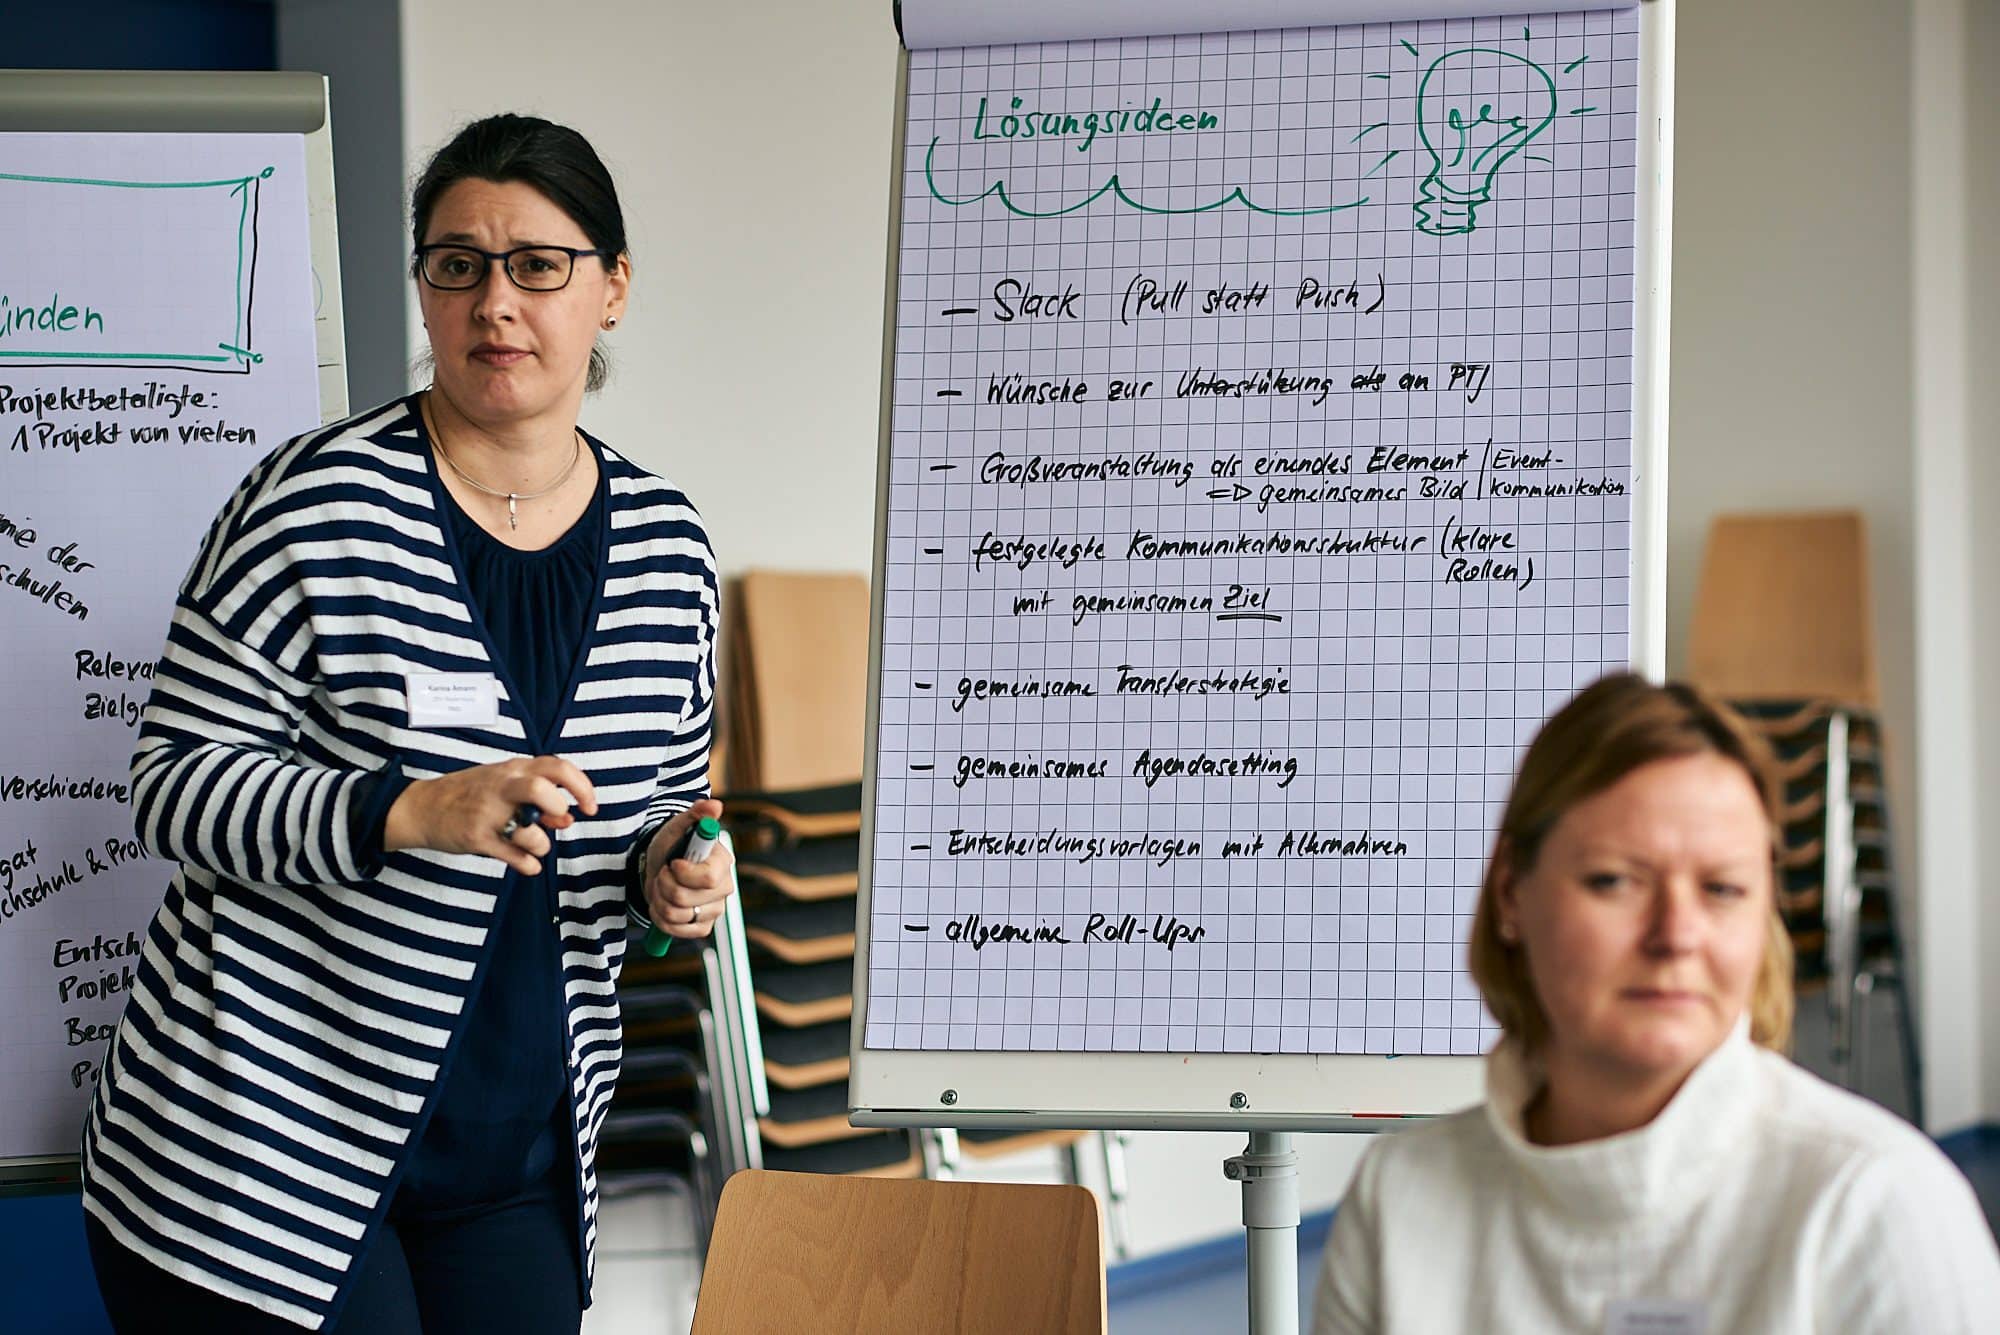 ünden
Projektbeteiligte:
1 Projekt von vielen
mie der
schulen
Relevan
Zielgr
verschiedene
gat
chschule & Pro
Entsch
Projek
Bea
Pr
Karina Amann
Lösungsideen
— Slack (Pull statt Push)
— Wünsche zur Unterstützung als an PTJ
— Großveranstaltung als einendes Element / Event-
=> gemeinsames Bild / kommunikation
— festgelegte Kommunikationsstruktur (klare
Rollen)
mit gemeinsamen Ziel
- gemeinsame Transferstrategie
— gemeinsames Agendasetting
- Entscheidungsvorlagen mit Alternativen
— allgemeine Roll-Ups